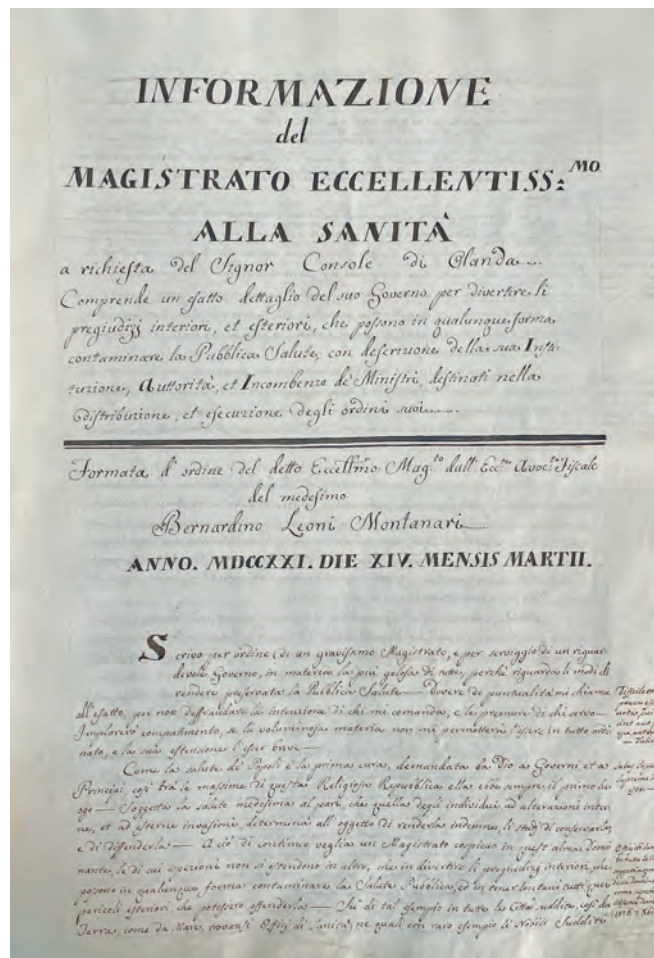 INFORMAZIONE
del
MAGISTRATO ECCELLENTISS:MO
ALLA SANITÀ
a richiesta del Signor Console di Olanda
Comprende un esatto dettaglio del suo Governo per divertire li
pregiudizj interiori, et esteriori, che possono in qualunque forma
contaminare la Pubblica Salute; con descrizione della sua Insti-
tuzione, Autorità, et Incombenze de' Ministri, destinati nella
distribuzione, et esecuzione degli ordini suoi
Formata d'ordine del detto Eccellmo. Mag.to dall' Ecc.te Avoc.to Fiscale
del medesimo
Bernardino Leoni Montanari
ANNO. MDCCXXI. DIE XIV. MENSIS MARTII.
Scrivo per ordine di un gravissimo Magistrato, e per servigio di un riguar-
devole Governo, in materia la più gelosa di tutte, perchè riguarda li modi di
rendere preservata la Pubblica Salute — Dovere di puntualità mi chiama
all'esatto, per non deffraudare la intenzione di chi mi comanda, e le premure di chi servo —
Imploreró compatimento, se la voluminosa materia non mi permetterà l'essere in tutto ordi
nato, e la sua estensione l'esser breve —
Come la salute de' Popoli è la prima cura, demandata da Dio a Governi, et a
Principi, così trà le massime di questa Religiosa Repubblica ella ebbe sempre il primo luo
ogo — Soggetta la salute medesima al pari, che quella degl'individui ad alterazioni inter
ne, et ad esterne invasioni, determina all'oggetto di renderla indemne, li studj di conservarla,
e di diffenderla — A ciò di continuo veglia un Magistrato cospicuo in quest'alma Domi
nante, le di cui ispezioni non si estendono in altro, che in divertire li pregiudizj interiori, che
possono in qualunque forma contaminare la Salute Pubblica, ed in tener lontani tutti que'
pericoli esteriori, che potessero offenderla — Sù di tal esempio in tutte le Città suddite, così da
Terra, come da Mare, trovansi Offizj di Sanità, ne' quali con raro esempio li Nobili Sudditi